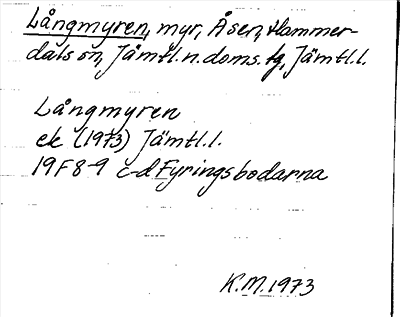 Långmyren, myr, Åsen, Hammer-
dals sn, Jämtl. n. doms. tg, Jämtl. l.
Långmyren
ek (1973) Jämtl. l.
19F 8-9 c-d Fyringsbodarna
K.M. 1973